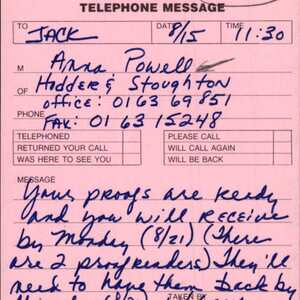 TELEPHONE MESSAGE
TO JACK DATE 8/15 TIME 11:30
M Anna Powell
OF Hodder & Stoughton
office: 0163 69851
PHONE FAX: 01 63 15248
TELEPHONED PLEASE CALL
RETURNED YOUR CALL WILL CALL AGAIN
WAS HERE TO SEE YOU WILL BE BACK
MESSAGE
Your proofs are ready
and you will receive
by Monday (8/21) (There
are 2 proofreaders) They'll
need to have them back by
TAKEN BY